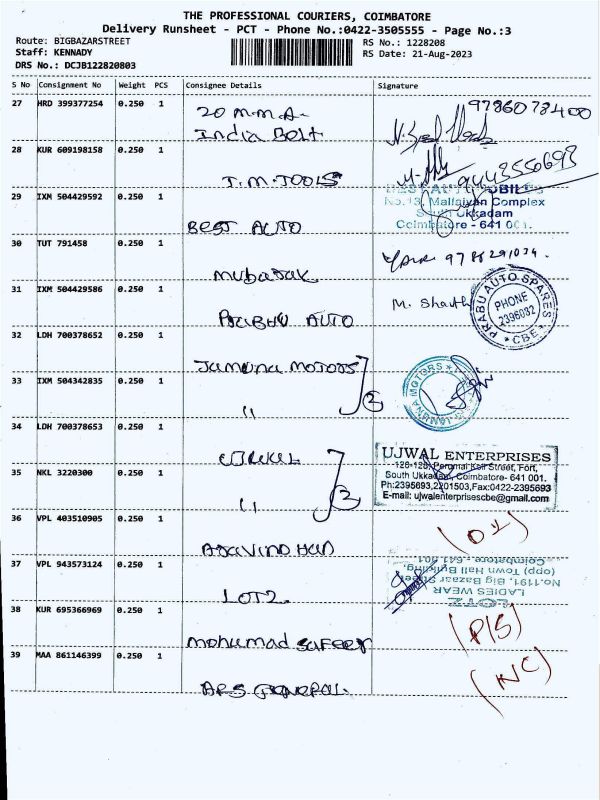 THE PROFESSIONAL COURIERS, COIMBATORE
Delivery Runsheet - PCT - Phone No.:0422-3505555 - Page No.:3
Route: BIGBAZARSTREET
RS No.: 1228208
Staff: KENNADY
RS Date: 21-Aug-2023
DRS No.: DCJB122820803
S No Consignment No Weight PCS Consignee Details Signature
27 HRD 399377254 0.250 1 20 M.M.A. 9786073400
India Bolt
28 KUR 609198158 0.250 1 T.M.TOOLS 9443550693
29 IXM 504429592 0.250 1 BEST AUTO
BEST AUTOMOBILES
No.13, Complex
South Ukkadam
Coimbatore - 641 001.
30 TUT 791458 0.250 1 Mubarak 9788291034.
31 IXM 504429586 0.250 1 Prabhu AUTO M. Sharth
PRABU AUTO SPARES
PHONE
2396082
* CBE *
32 LDH 700378652 0.250 1 Jamuna Motors
33 IXM 504342835 0.250 1 " 2
JAMUNA MOTORS
34 LDH 700378653 0.250 1 UJWAL
35 NKL 3220300 0.250 1 " 2
UJWAL ENTERPRISES
126-128, Perumal Koil Street, Fort,
South Ukkadam, Coimbatore- 641 001.
Ph:2395693,2201503,Fax:0422-2395693
E-mail: ujwalenterprisescbe@gmail.com
36 VPL 403510905 0.250 1 Aravindhan
37 VPL 943573124 0.250 1 LOTZ
LOTZ
LADIES WEAR
No.1191, Big Bazaar Street
(opp) Town Hall Building,
Coimbatore - 641 001
38 KUR 695366969 0.250 1 Mohumad Safeer (P/S)
39 MAA 861146399 0.250 1 ARS General. (INC)